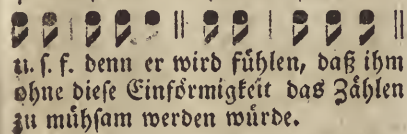 u. ſ. f. denn er wird fühlen, daß ihm
ohne dieſe Einförmigkeit das Zählen
zu mühſam werden würde.